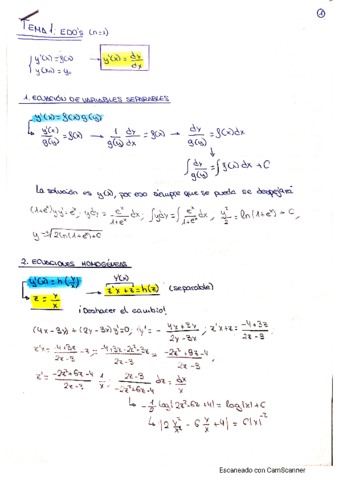 ①
TEMA 1. EDO's (n=1)
{ y'(x) = f(x)
y(x₀) = y₀ → y'(x) = dy/dx
1. ECUACIÓN DE VARIABLES SEPARABLES
y'(x) = f(x) g(y)
→ y'(x)/g(y) = f(x) → 1/g(y) dy/dx = f(x) → dy/g(y) = f(x)dx
∫ dy/g(y) = ∫ f(x)dx + C
La solución es y(x), por eso siempre que se pueda se despejará
(1+eˣ)yy' = eˣ; ydy = eˣ/(1+eˣ) dx; ∫ydy = ∫ eˣ/(1+eˣ) dx; y²/2 = ln(1+eˣ) + C,
y = ±√(2(ln(1+eˣ)+C
2. ECUACIONES HOMOGÉNEAS
y'(x) = h(y/x) → z'x + z = h(z) (separable)
z = y/x
¡Deshacer el cambio!
(4x-3y) + (2y-3x)y' = 0; y' = - (4x-3y)/(2y-3x); z'x+z = (-4+3z)/(2z-3)
z'x = (-4+3z)/(2z-3) - z = (-4+3z-2z²+3z)/(2z-3) = (-2z²+6z-4)/(2z-3)
z' = (-2z²+6z-4)/(2z-3) · 1/x; (2z-3)/(-2z²+6z-4) dz = dx/x
→ -1/2 log|2z²-6z+4| = log|x| + C
→ |2 y²/x² - 6 y/x + 4| = C|x|⁻²
Escaneado con CamScanner